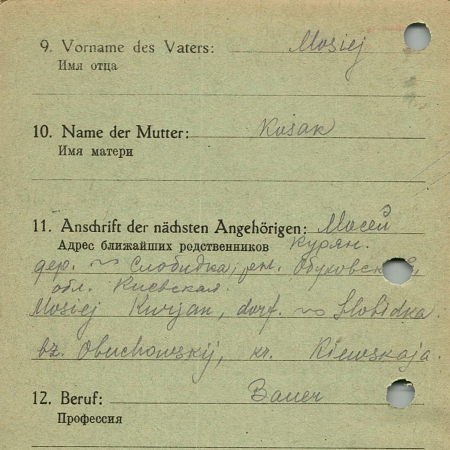 9. Vorname des Vaters: Mosiej
Имя отца
10. Name der Mutter: Kośak
Имя матери
11. Anschrift der nächsten Angehörigen: Мосей
Адрес ближайших родственников Курян.
дер. Слобидка, Обуховский,
обл. Киевская.
Mosiej Kurjan, dorf. Slobidka.
bz. Obuchowskij, kr. Kiewskaja.
12. Beruf: Bauer
Профессия